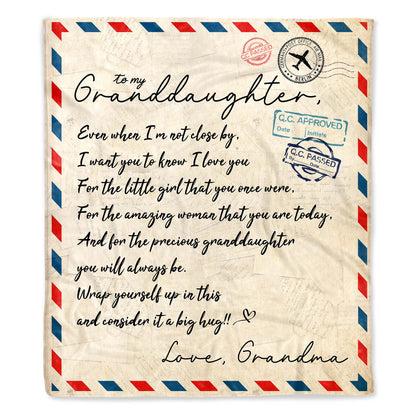 Q.C. PASSED
BERLIN
to my
Granddaughter,
Q.C. APPROVED
Date
Initials
Q.C. PASSED
By
Date
Even when I'm not close by,
I want you to know I love you
For the little girl that you once were,
For the amazing woman that you are today,
And for the precious granddaughter
you will always be.
Wrap yourself up in this
and consider it a big hug!!
Love, Grandma